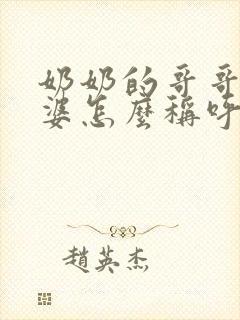 奶奶的哥哥
婆怎麼稱呼
趙英杰